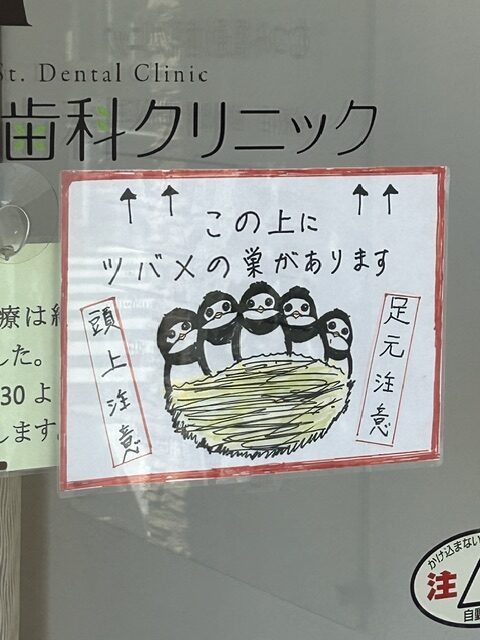 St. Dental Clinic
歯科クリニック
↑ ↑ ↑ ↑
この上に
ツバメの巣があります
頭上注意
足元注意
療は
した。
30 よ
します。
かけ込まない
注
自動